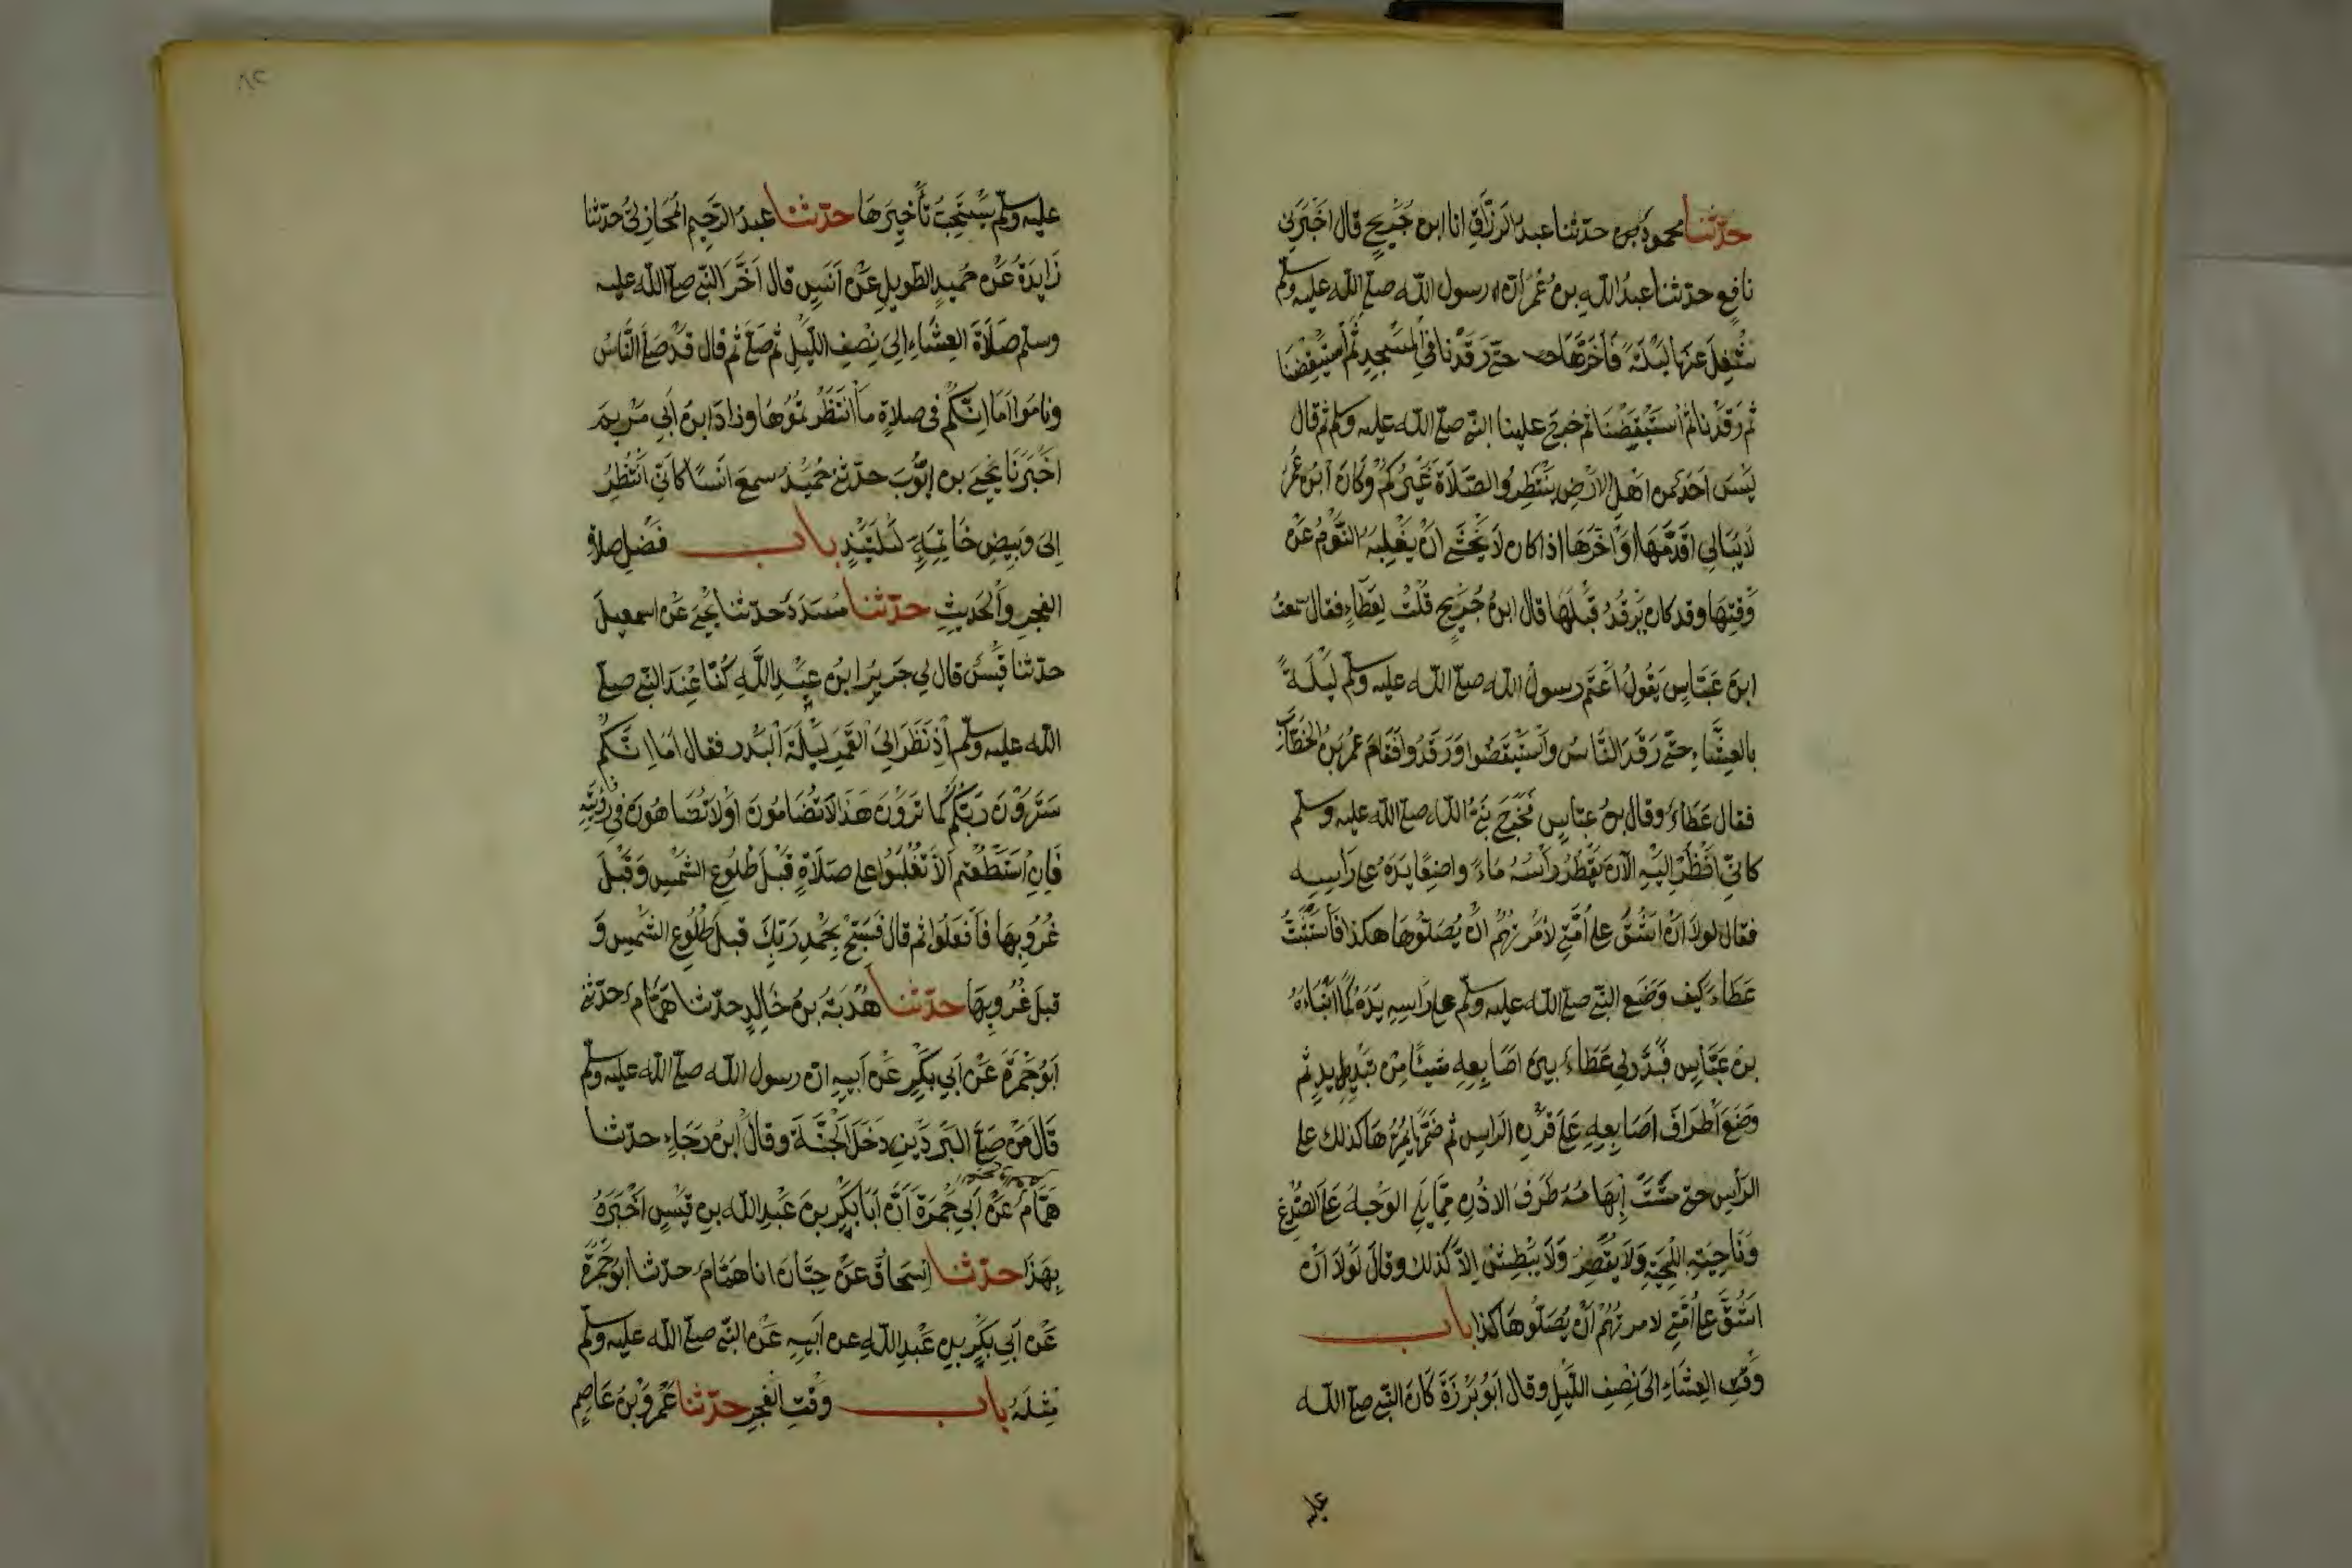 حدثنا محمود بن حدثنا عبد الرزاق انا ابن جريج قال اخبرني
نافع حدثنا عبد الله بن عمر ان رسول الله صلى الله عليه وسلم
شغل عنها ليلة فاخرها حتى رقدنا في المسجد ثم استيقضنا
ثم رقدنا ثم استيقضنا ثم خرج علينا النبي صلى الله عليه وسلم ثم قال
ليس احد من اهل الارض ينتظر الصلاة غيركم وكان ابن عمر
لا يبالي اقدمها او اخرها اذا كان لا يخشى ان يغلبه النوم عن
وقتها وقد كان يرقد قبلها قال ابن جريج قلت لعطاء فقال سمعت
ابن عباس يقول اعتم رسول الله صلى الله عليه وسلم ليلة
بالعشاء حتى رقد الناس واستيقضوا ورقدوا فقام عمر بن الخطاب
فقال عطاء وقال بن عباس فخرج نبي الله صلى الله عليه وسلم
كاني انظر اليه الآن يقطر راسه ماء واضعا يده على راسه
فقال لولا ان اشق على امتي لامرتهم ان يصلوها هكذا فاستثبت
عطاء كيف وضع النبي صلى الله عليه وسلم على راسه يده كما انباه
بن عباس فبدد لي عطاء بين اصابعه شيئا من تبديد ثم
وضع اطراف اصابعه على قرن الراس ثم ضمها يمرها كذلك على
الراس حتى مست ابهامه طرف الاذن مما يلي الوجه على الصدغ
وناحية اللحية ولا يقصر ولا يبطش الا كذلك وقال لولا ان
اشق على امتي لامرتهم ان يصلوها كذا باب
وقت العشاء الى نصف الليل وقال ابو برزة كان النبي صلى الله
عليه
٨٢
عليه وسلم يستحب تأخيرها حدثنا عبد الرحيم المحاربي حدثنا
زايدة عن حميد الطويل عن انس قال اخر النبي صلى الله عليه
وسلم صلاة العشاء الى نصف الليل ثم صلى ثم قال قد صلى الناس
وناموا اما انكم في صلاة ما انتظرتموها وزاد ابن ابي مريم
اخبرنا يحيى بن ايوب حدثني حميد سمع انسا كاني انظر
الى وبيض خاتمه ليلتيذ باب فضل صلاة
الفجر والحديث حدثنا مسدد حدثنا يحيى عن اسمعيل
حدثنا قيس قال لي جرير ابن عبد الله كنا عند النبي صلى
الله عليه وسلم اذ نظر الى القمر ليلة البدر فقال اما انكم
سترون ربكم كما ترون هذا لا تضامون او لا تضاهون في رؤيته
فان استطعتم الا تغلبوا على صلاة قبل طلوع الشمس وقبل
غروبها فافعلوا ثم قال فسبح بحمد ربك قبل طلوع الشمس و
قبل غروبها حدثنا هدبة بن خالد حدثنا همام حدثني
ابو جمرة عن ابي بكر عن ابيه ان رسول الله صلى الله عليه وسلم
قال من صلى البردين دخل الجنة وقال ابن رجاء حدثنا
همام عن ابي جمرة ان ابا بكر بن عبد الله بن قيس اخبره
بهذا حدثنا اسحاق عن حبان انا همام حدثنا ابو جمرة
عن ابي بكر بن عبد الله عن ابيه عن النبي صلى الله عليه وسلم
مثله باب وقت الفجر حدثنا عمرو بن عاصم